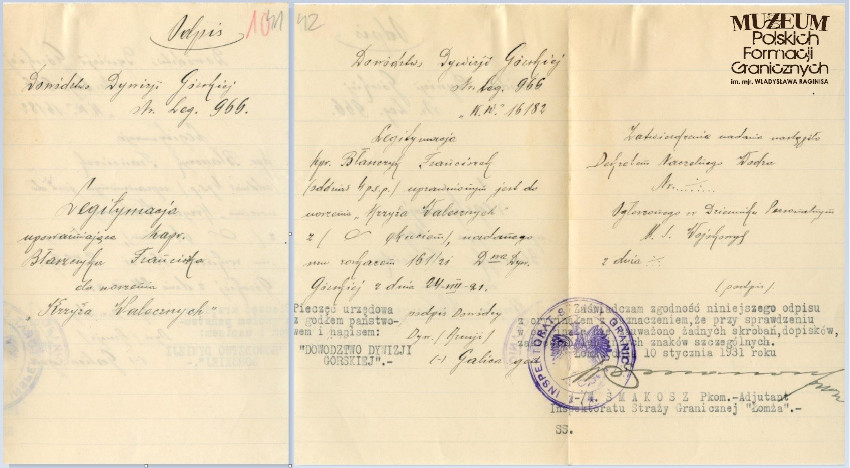 Odpis
10
42
Dowództwo Dywizji Górskiej
Nr. Leg. 966.
Legitymacja
upoważniające kapr.
Błaszczyka Franciszka
do noszenia
"Krzyża Walecznych"
Dowództwo Dywizji Górskiej
Nr. Leg. 966
"K.W." 16182
Legitymacja
kpr. Błaszczyk Franciszek
/oddział 4 p.s.p./ uprawnionym jest do
noszenia "Krzyża Walecznych"
z / okuciem/, nadanego
mu rozkazem 161/21 Dywizji
Górskiej z dnia 24.VIII.21.
Pieczęć urzędowa
z godłem państwo-
wem i napisem:
"DOWODZTWO DYWIZJI
GORSKIEJ".-
podpis Dowódcy
Dyw.
(-) Galica
MUZEUM
Polskich
Formacji
Granicznych
im. mjr. WŁADYSŁAWA RAGINISA
Zatwierdzenie nadania nastąpiło
Dekretem Naczelnego Wodza
Nr.
Ogłoszonego w Dzienniku Personalnym
M. S. Wojskowych
z dnia
(podpis)
Zaświadczam zgodność niniejszego odpisu
z oryginałem z zaznaczeniem, że przy sprawdzeniu
uważono żadnych skrobań, dopisków,
znaków szczególnych.
10 stycznia 1931 roku
SMAKOSZ Pkom.-Adjutant
Inspektoratu Straży Granicznej "Łomża".-
SS.
INSPEKTORAT GRANIC